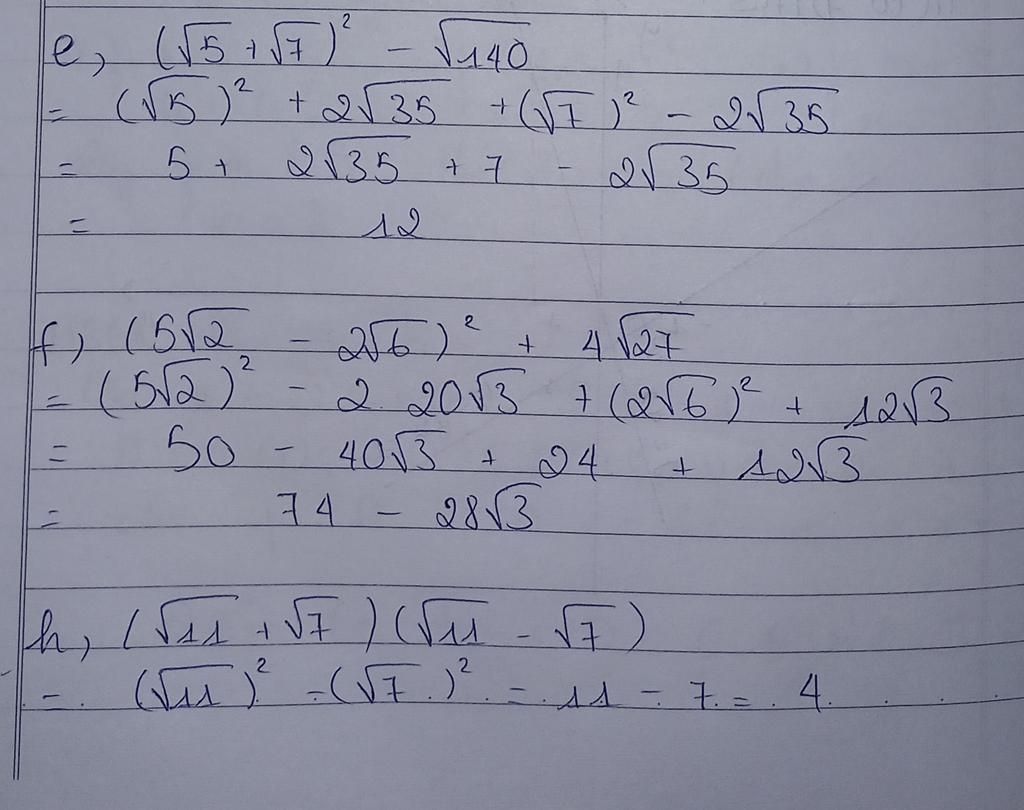 e, (√5 + √7)² - √140
= (√5)² + 2√35 + (√7)² - 2√35
= 5 + 2√35 + 7 - 2√35
= 12
f, (5√2 - 2√6)² + 4√27
= (5√2)² - 2. 20√3 + (2√6)² + 12√3
= 50 - 40√3 + 24 + 12√3
= 74 - 28√3
h, (√11 + √7)(√11 - √7)
= (√11)² - (√7)² = 11 - 7 = 4